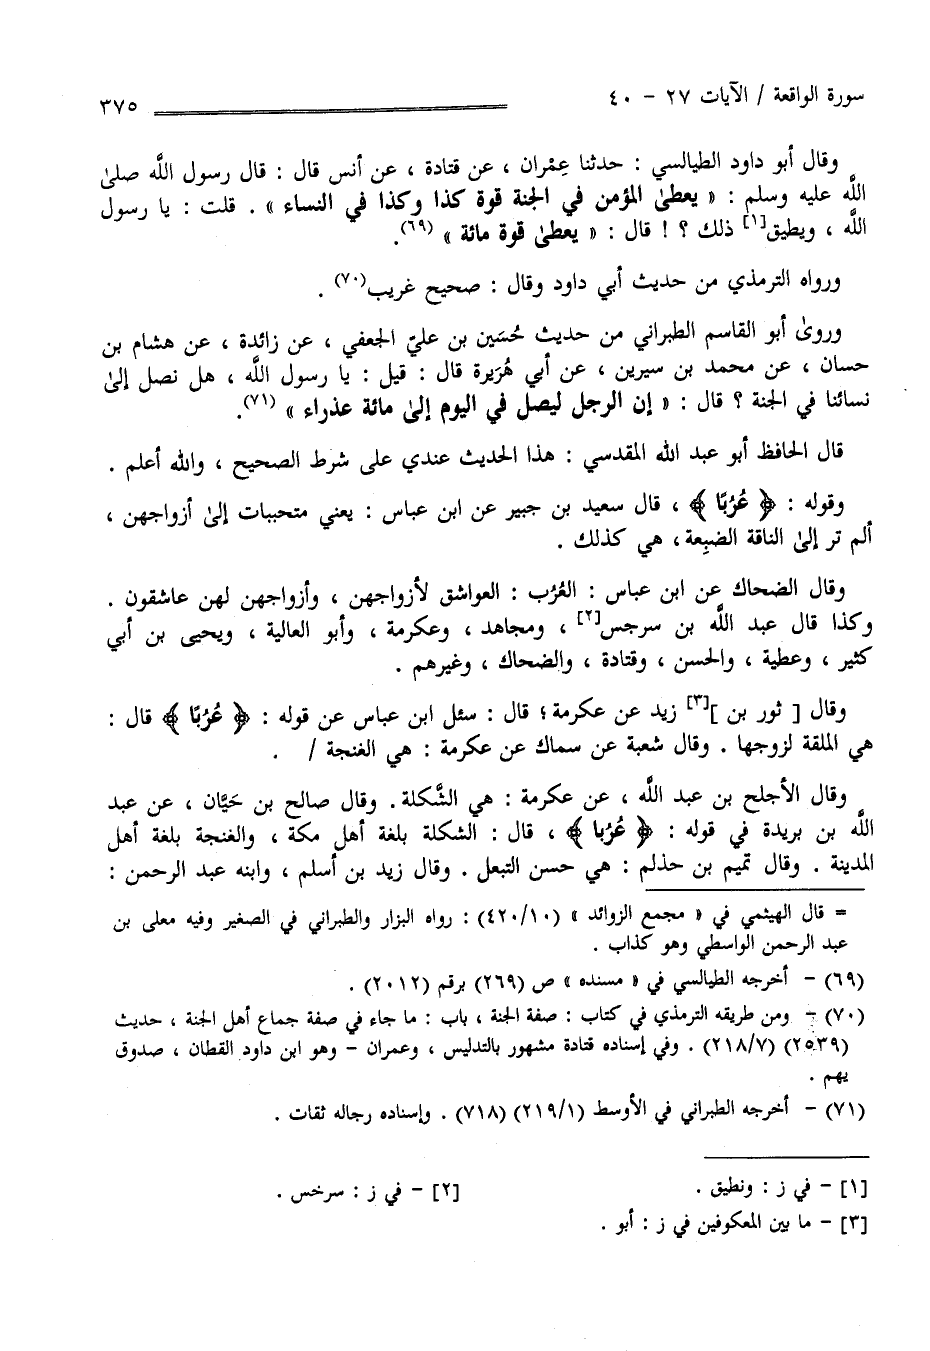 سورة الواقعة / الآيات ٢٧ – ٤٠ ٣٧٥
وقال أبو داود الطيالسي : حدثنا عِمْران ، عن قتادة ، عن أنس قال : قال رسول الله صلىٰ
اللَّه عليه وسلم : « يعطىٰ المؤمن في الجنة قوة كذا وكذا في النساء » . قلت : يا رسول
اللَّه ، ويطيق[١] ذلك ؟ ! قال : « يعطىٰ قوة مائة » (٦٩).
ورواه الترمذي من حديث أبي داود وقال : صحيح غريب(٧٠) .
وروىٰ أبو القاسم الطبراني من حديث حُسَين بن عليّ الجعفي ، عن زائدة ، عن هشام بن
حسان ، عن محمد بن سيرين ، عن أبي هُرَيرة قال : قيل : يا رسول اللَّه ، هل نصل إلىٰ
نسائنا في الجنة ؟ قال : « إن الرجل ليصل في اليوم إلىٰ مائة عذراء » (٧١).
قال الحافظ أبو عبد الله المقدسي : هذا الحديث عندي على شرط الصحيح ، والله أعلم .
وقوله : ﴿ عُرُبًا ﴾ ، قال سعيد بن جبير عن ابن عباس : يعني متحببات إلىٰ أزواجهن ،
ألم تر إلىٰ الناقة الضبِعة، هي كذلك .
وقال الضحاك عن ابن عباس : العُرُب : العواشق لأزواجهن ، وأزواجهن لهن عاشقون .
وكذا قال عبد اللَّه بن سرجس[٢] ، ومجاهد ، وعكرمة ، وأبو العالية ، ويحيى بن أبي
كثير ، وعطية ، والحسن ، وقتادة ، والضحاك ، وغيرهم .
وقال [ ثور بن ][٣] زيد عن عكرمة؛ قال : سئل ابن عباس عن قوله : ﴿ عُرُبًا ﴾ قال :
هي الملقة لزوجها . وقال شعبة عن سماك عن عكرمة : هي الغنجة / .
وقال الأجلح بن عبد اللَّه ، عن عكرمة : هي الشَّكلة. وقال صالح بن حَيَّان ، عن عبد
اللَّه بن بريدة في قوله : ﴿ عُرُبا ﴾ ، قال : الشكلة بلغة أهل مكة ، والغنجة بلغة أهل
المدينة . وقال تميم بن حذلم : هي حسن التبعل . وقال زيد بن أسلم ، وابنه عبد الرحمن :
= قال الهيثمي في « مجمع الزوائد » (٤٢٠/١٠) : رواه البزار والطبراني في الصغير وفيه معلى بن
عبد الرحمن الواسطي وهو كذاب .
(٦٩) – أخرجه الطيالسي في « مسنده » ص (٢٦٩) برقم (٢٠١٢) .
(٧٠) – ومن طريقه الترمذي في كتاب : صفة الجنة ، باب : ما جاء في صفة جماع أهل الجنة ، حديث
(٢٥٣٩) (٢١٨/٧) . وفي إسناده قتادة مشهور بالتدليس ، وعمران – وهو ابن داود القطان ، صدوق
يهم .
(٧١) – أخرجه الطبراني في الأوسط (٢١٩/١) (٧١٨) . وإسناده رجاله ثقات .
[١] – في ز : ونطيق . [٢] – في ز : سرخس .
[٣] – ما بين المعكوفين في ز : أبو .